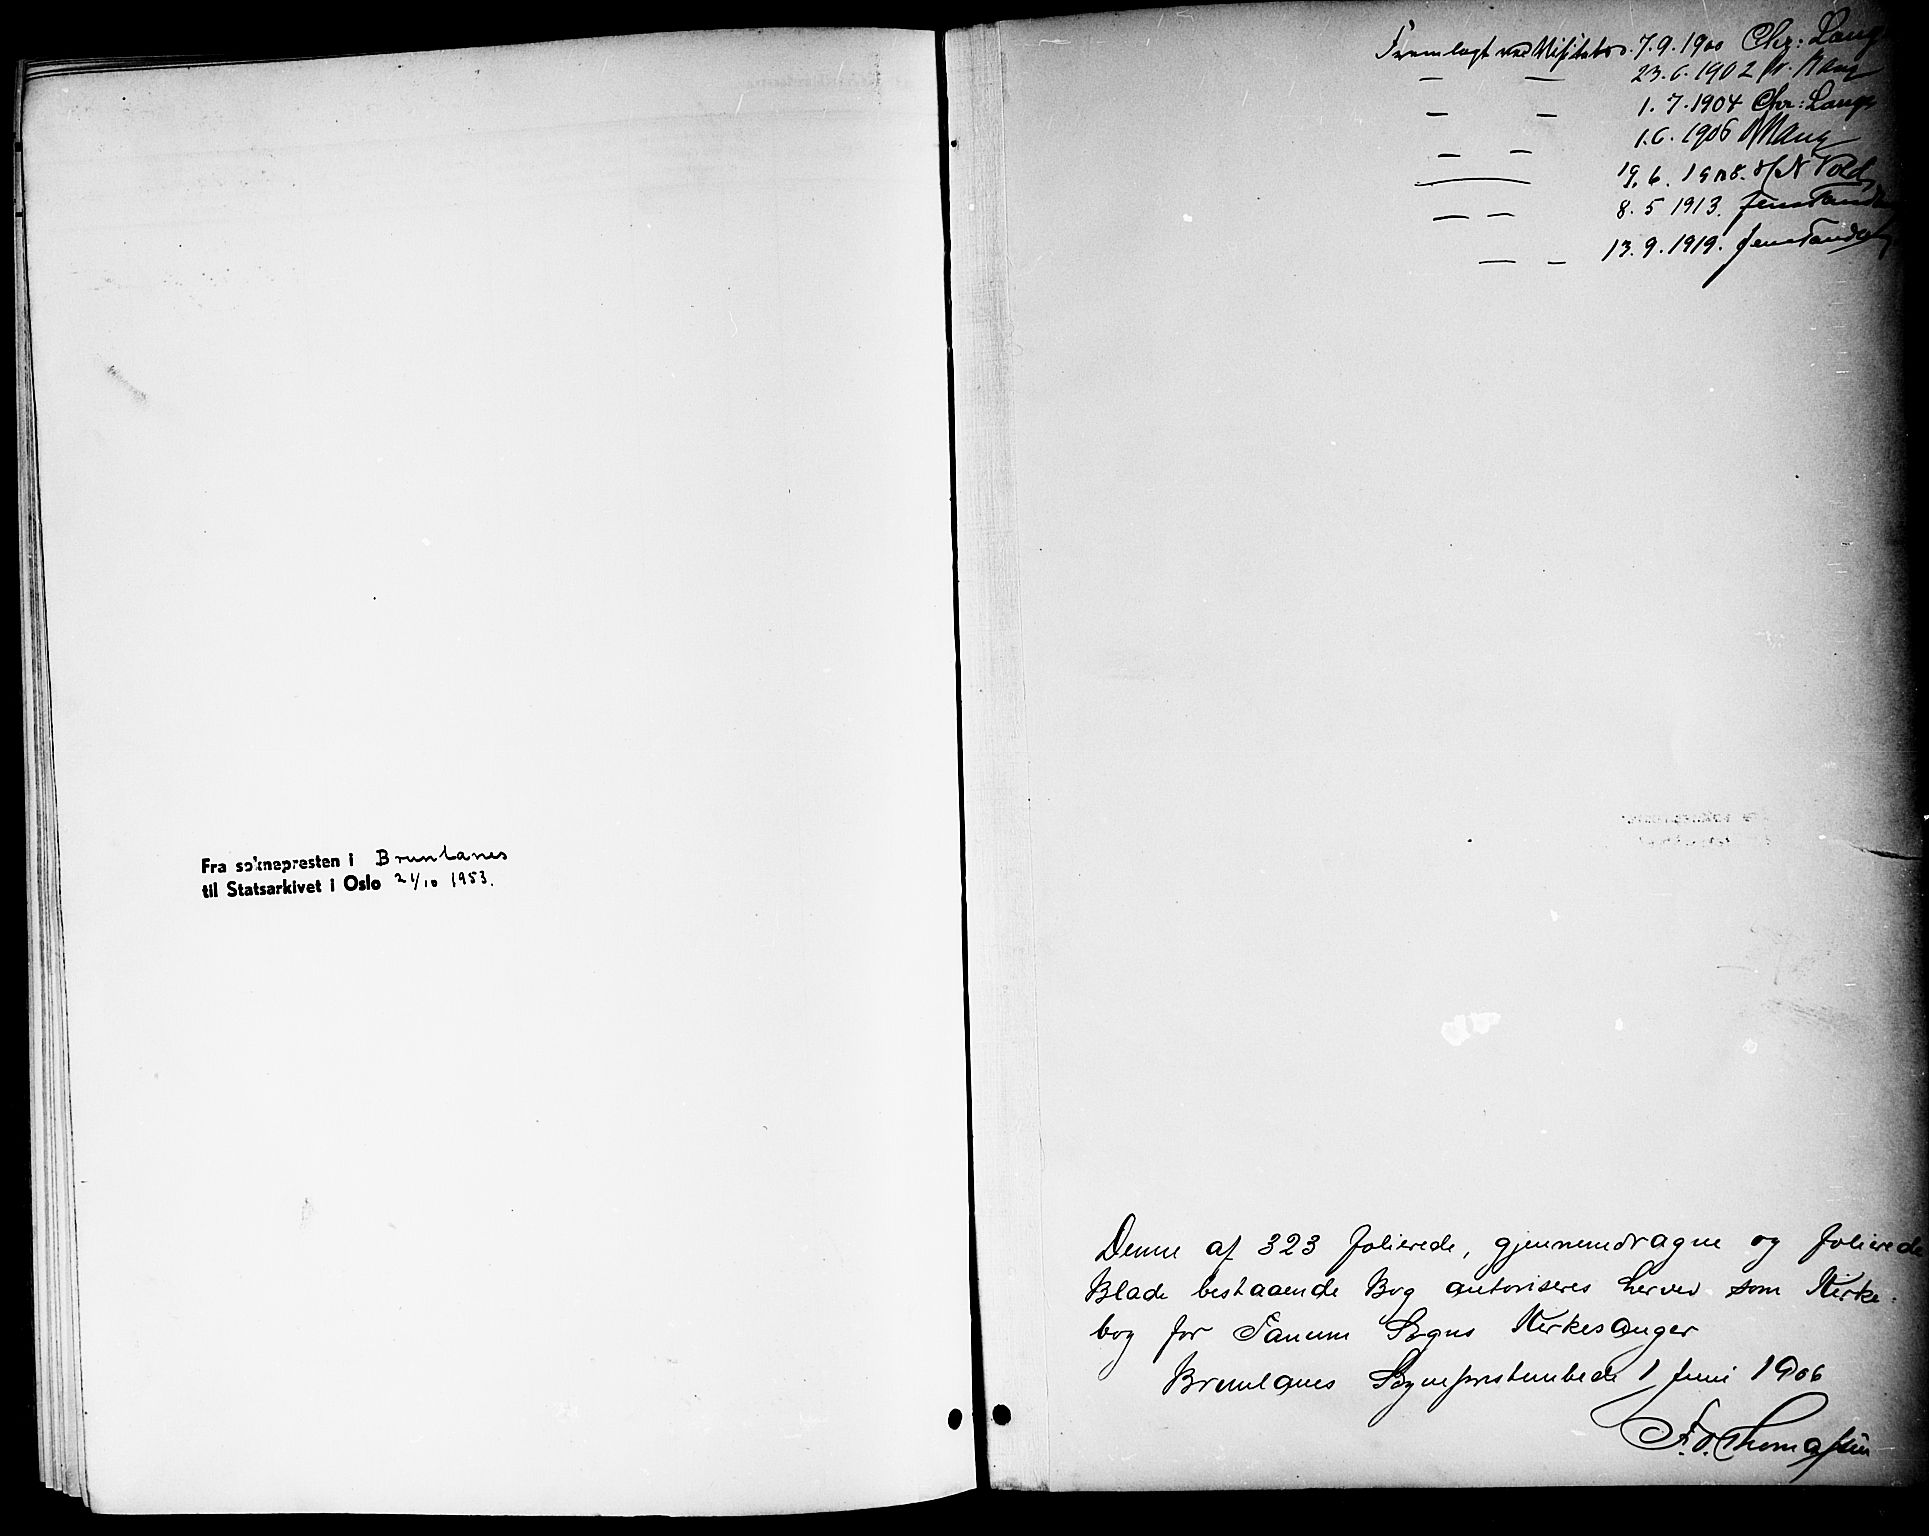 Fra soknepresten i Brunlanes
til Statsarkivet i Oslo 21/10 1953.
Fremlagt ved Visitats. 7.9.1900 Chr: Lange
— — 23.6.1902
— — 1.7.1904 Chr: Lange
— — 1.6.1906
— 19.6.1908. Vold
— — 8.5 1913. Jens Tandberg
— — 13.9.1919. Jens Tandberg
Denne af 323 folierede, gjennemdragne og folierede
Blade bestaaende Bog autoriseres herved som Kirke-
bog for Tanum Sogns Kirkesanger
Brunlanes Sogneprestembede 1 Juni 1906
F. O. Thomassen